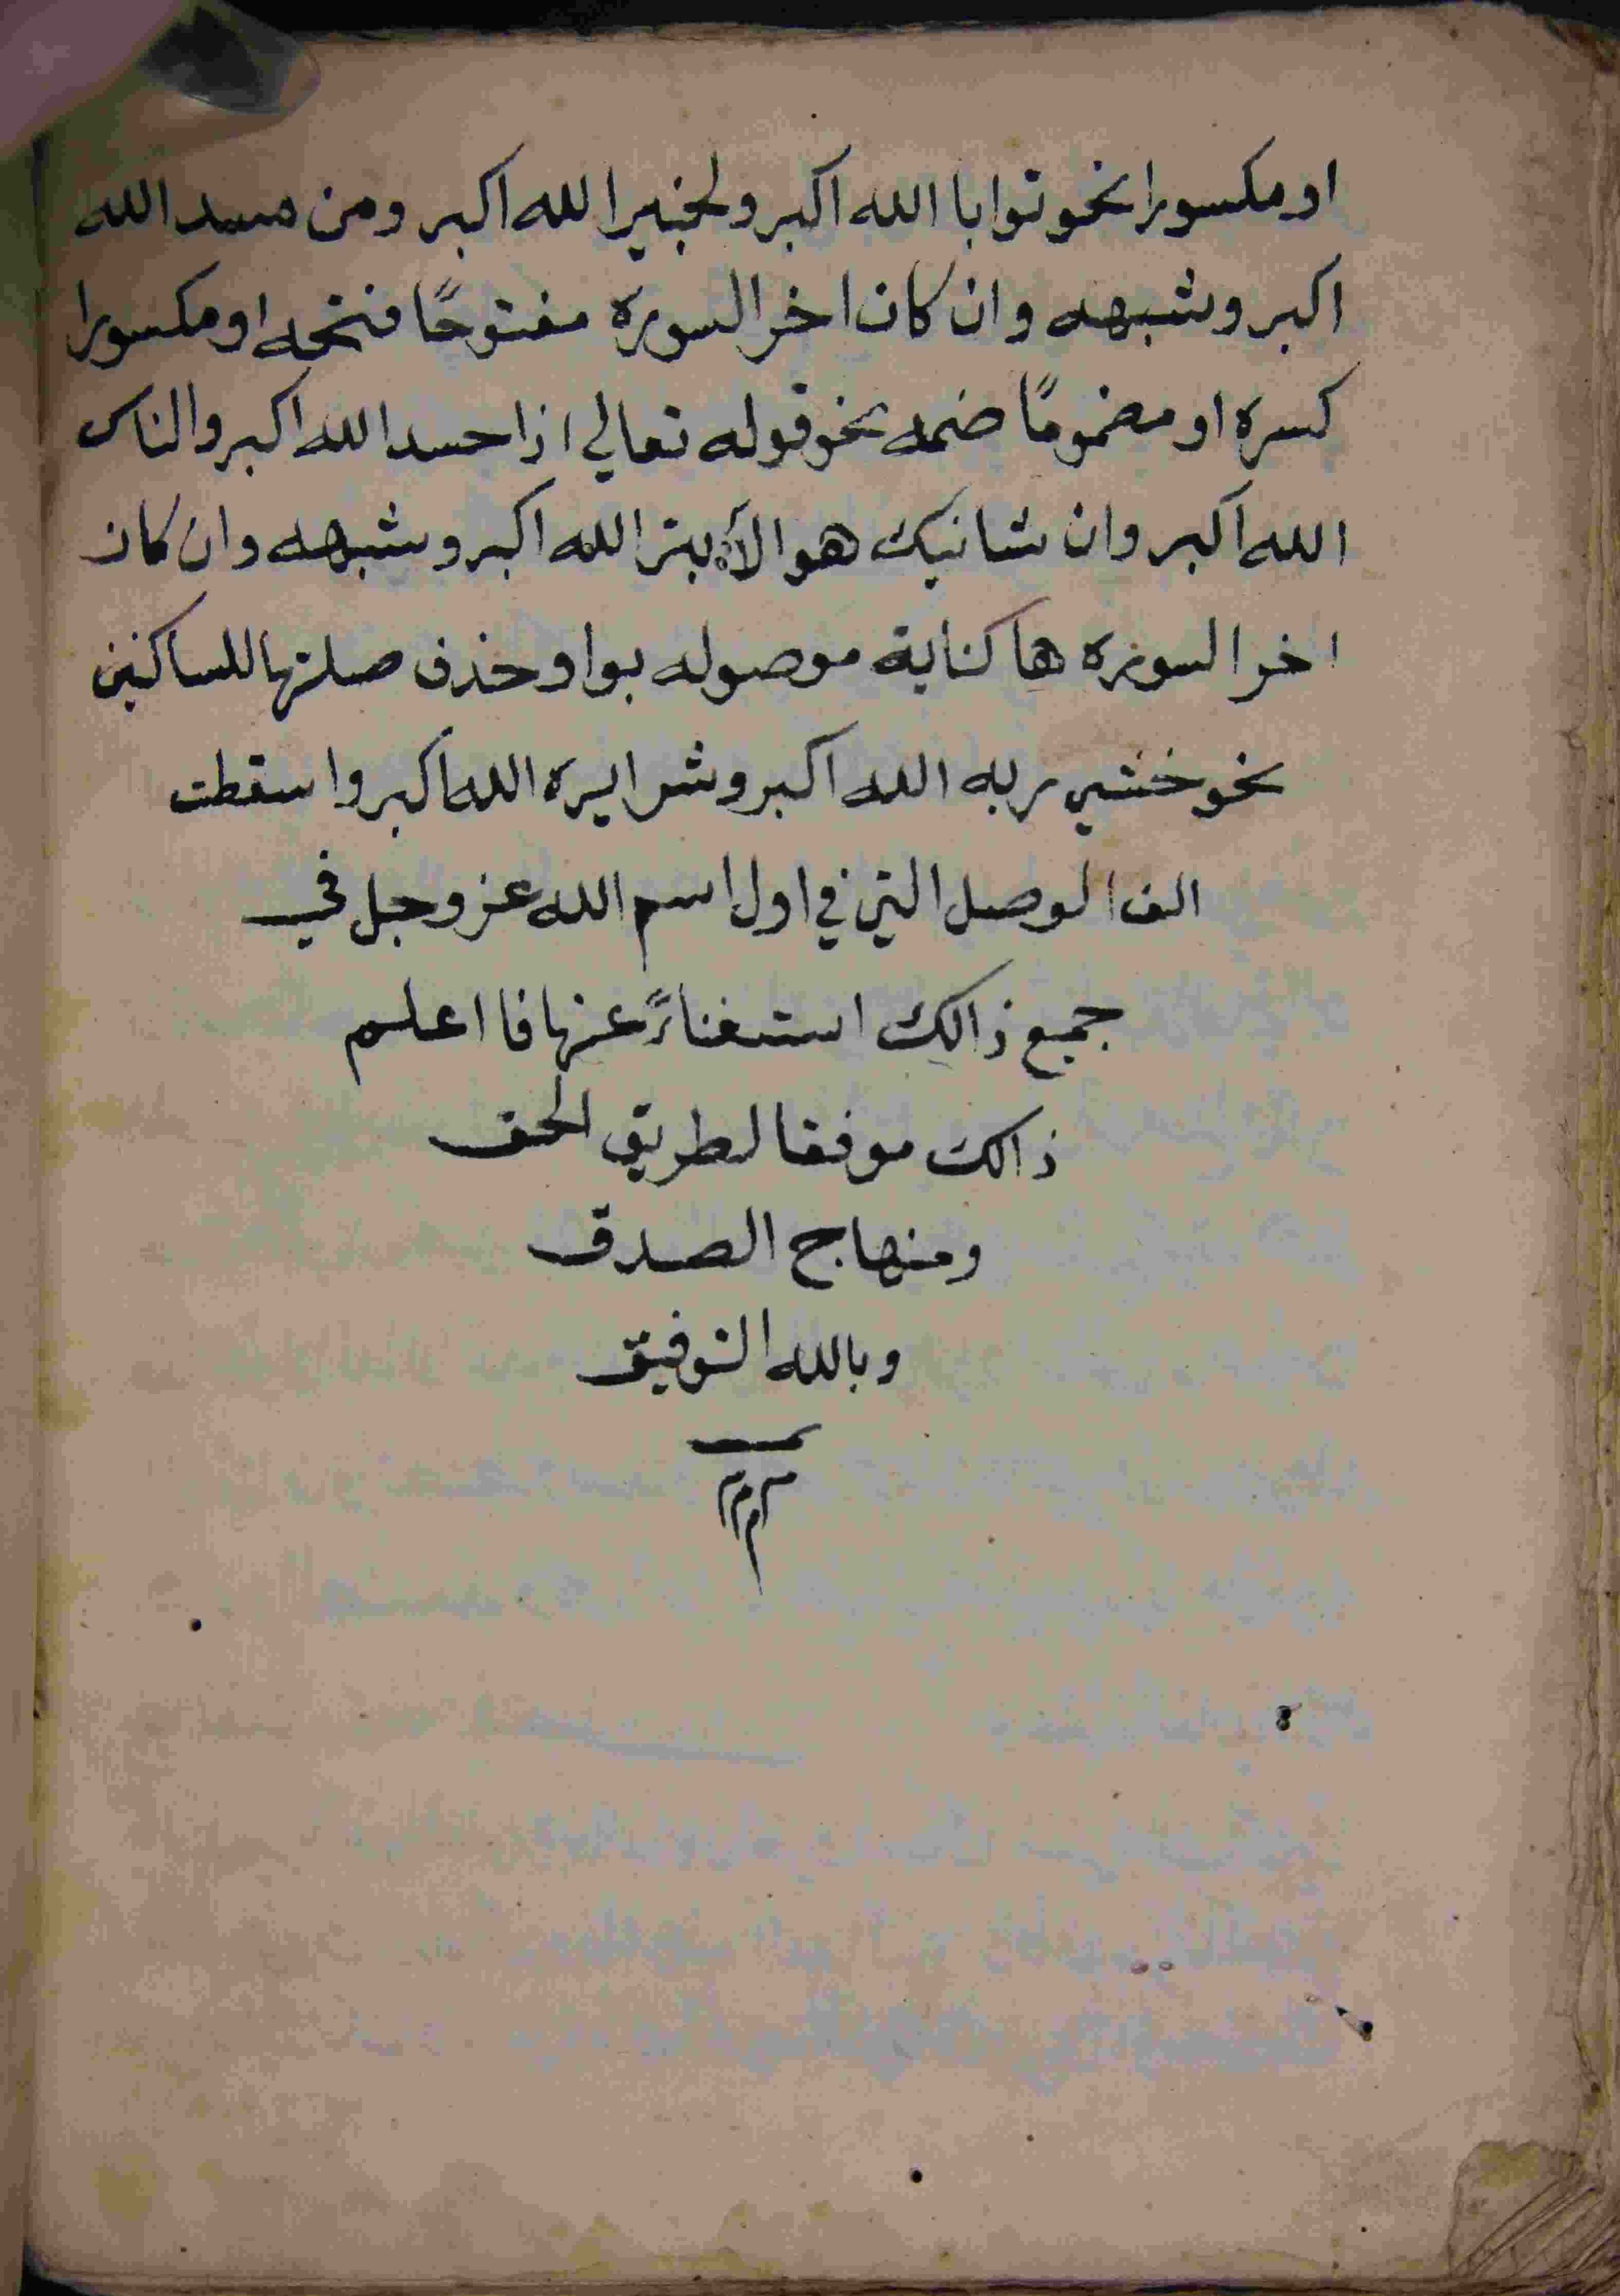 او مكسورا نحو توابا الله اكبر ولخبيرا لله اكبر ومن مسد الله
اكبر وشبهه وان كان اخر السورة مفتوحًا فتحه او مكسورا
كسره او مضمومًا ضمه نحو قوله تعالي اذا حسد الله اكبر والناس
الله اكبر وان شانيك هو الأبتر الله اكبر وشبهه وان كان
اخر السورة ها كناية موصوله بواو حذف صلتها للساكنين
نحو خشي ربه الله اكبر وشرا يره الله اكبر واسقطت
الف الوصل التي في اول اسم الله عز وجل في
جميع ذالك استغناءً عنها فا اعلم
ذالك موفقا لطريق الحق
ومنهاج الصدق
وبالله التوفيق